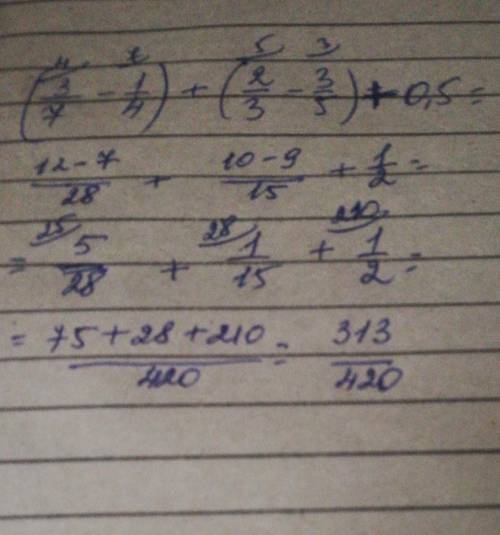 (3/7 - 1/4) + (2/3 - 3/5) + 0,5 =
12-7/28 + 10-9/15 + 1/2 =
= 5/28 + 1/15 + 1/2 =
= 75+28+210/420 = 313/420